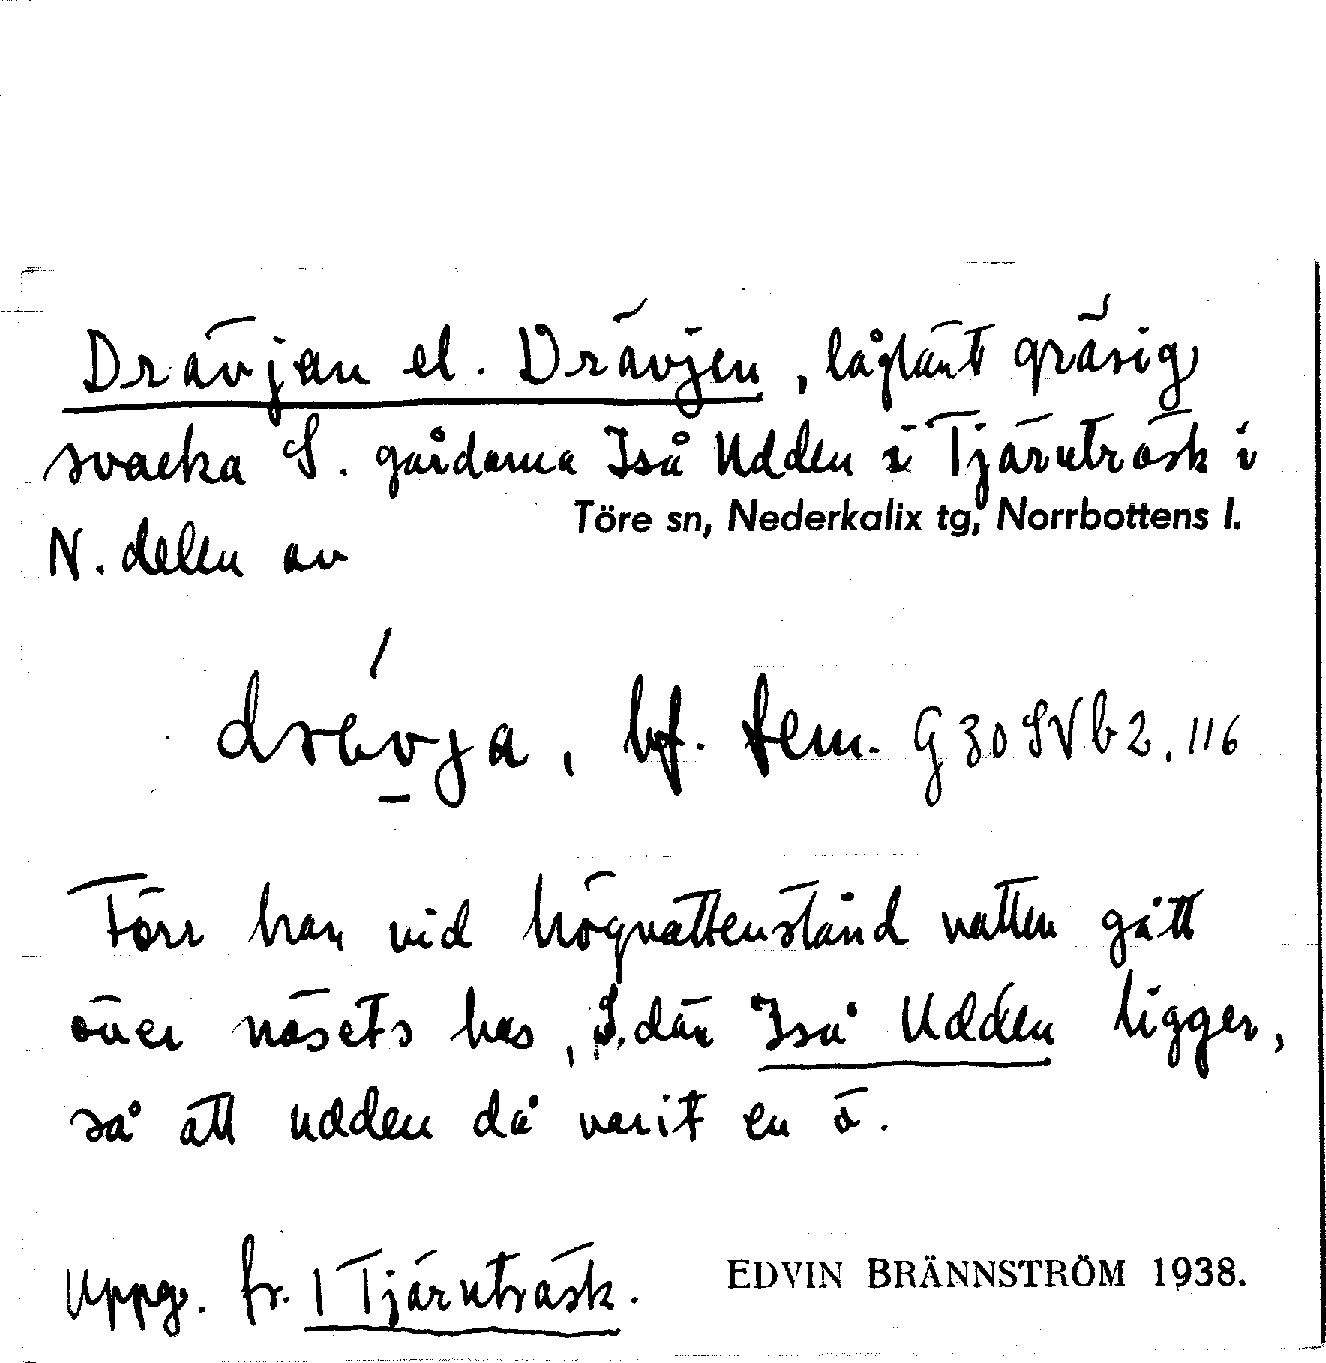 Drävjan el. Drävjen, låglänt gräsig
svacka S. gårdarna Iså Udden i Tjärnträsk i
Töre sn, Nederkalix tg, Norrbottens l.
N. delen av
bf. fem. G 30 SV b 2, 116
Förr har vid högvattenstånd vatten gått
över näsets has, S. där Iså Udden ligger,
så att udden då varit en ö.
Uppg. fr. 1 Tjärnträsk. EDVIN BRÄNNSTRÖM 1938.